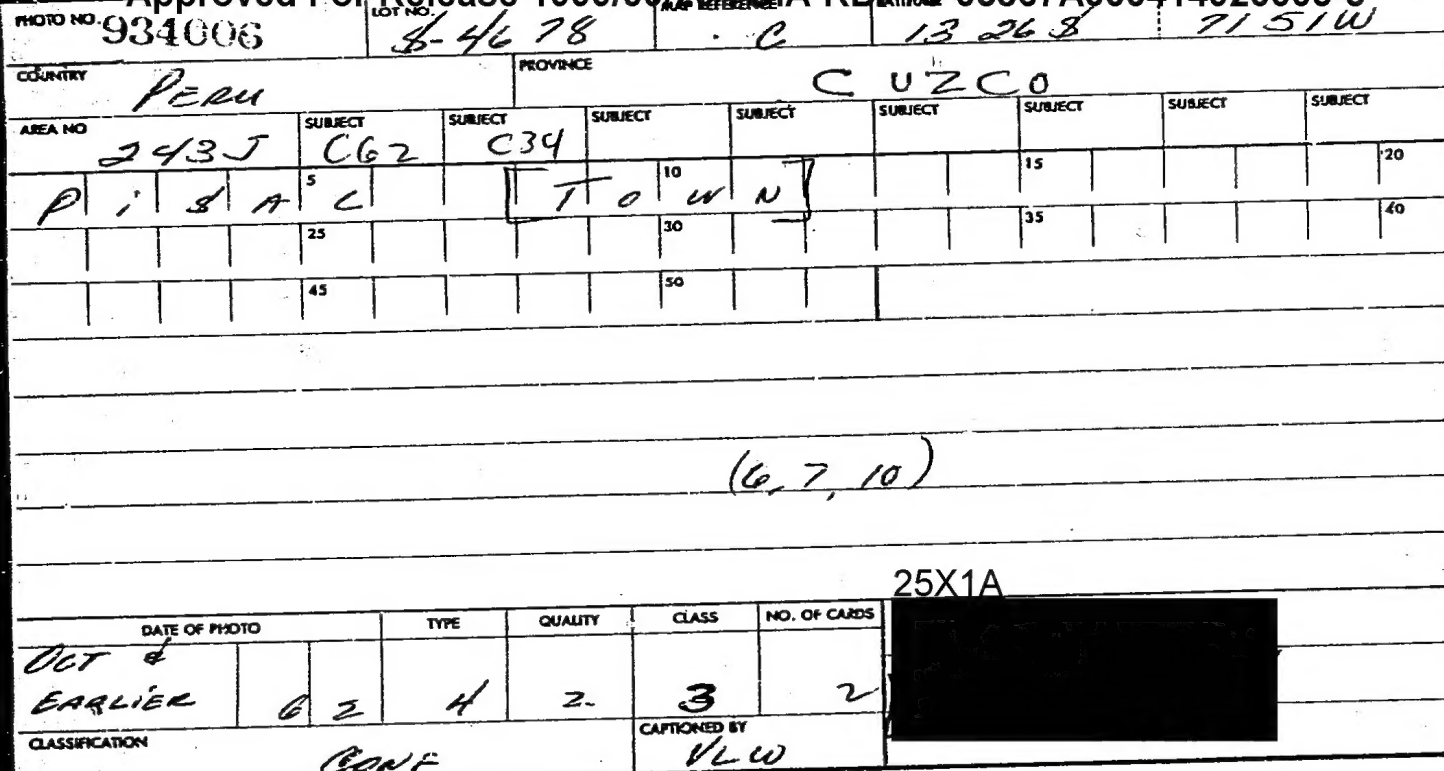 Approved For Release
PHOTO NO. 934006 LOT NO. S-4678 MAP REFERENCE . C 13 26 S 71 51 W
COUNTRY PERU PROVINCE CUZCO
AREA NO 243J SUBJECT C62 SUBJECT C34 SUBJECT SUBJECT SUBJECT SUBJECT SUBJECT SUBJECT
PiSAC 5 [TOWN] 10 15 20
25 30 35 40
45 50
(6, 7, 10)
25X1A
DATE OF PHOTO TYPE QUALITY CLASS NO. OF CARDS
OCT &
EARLIER 6 2 4 2. 3 2
CLASSIFICATION CONF CAPTIONED BY VLW